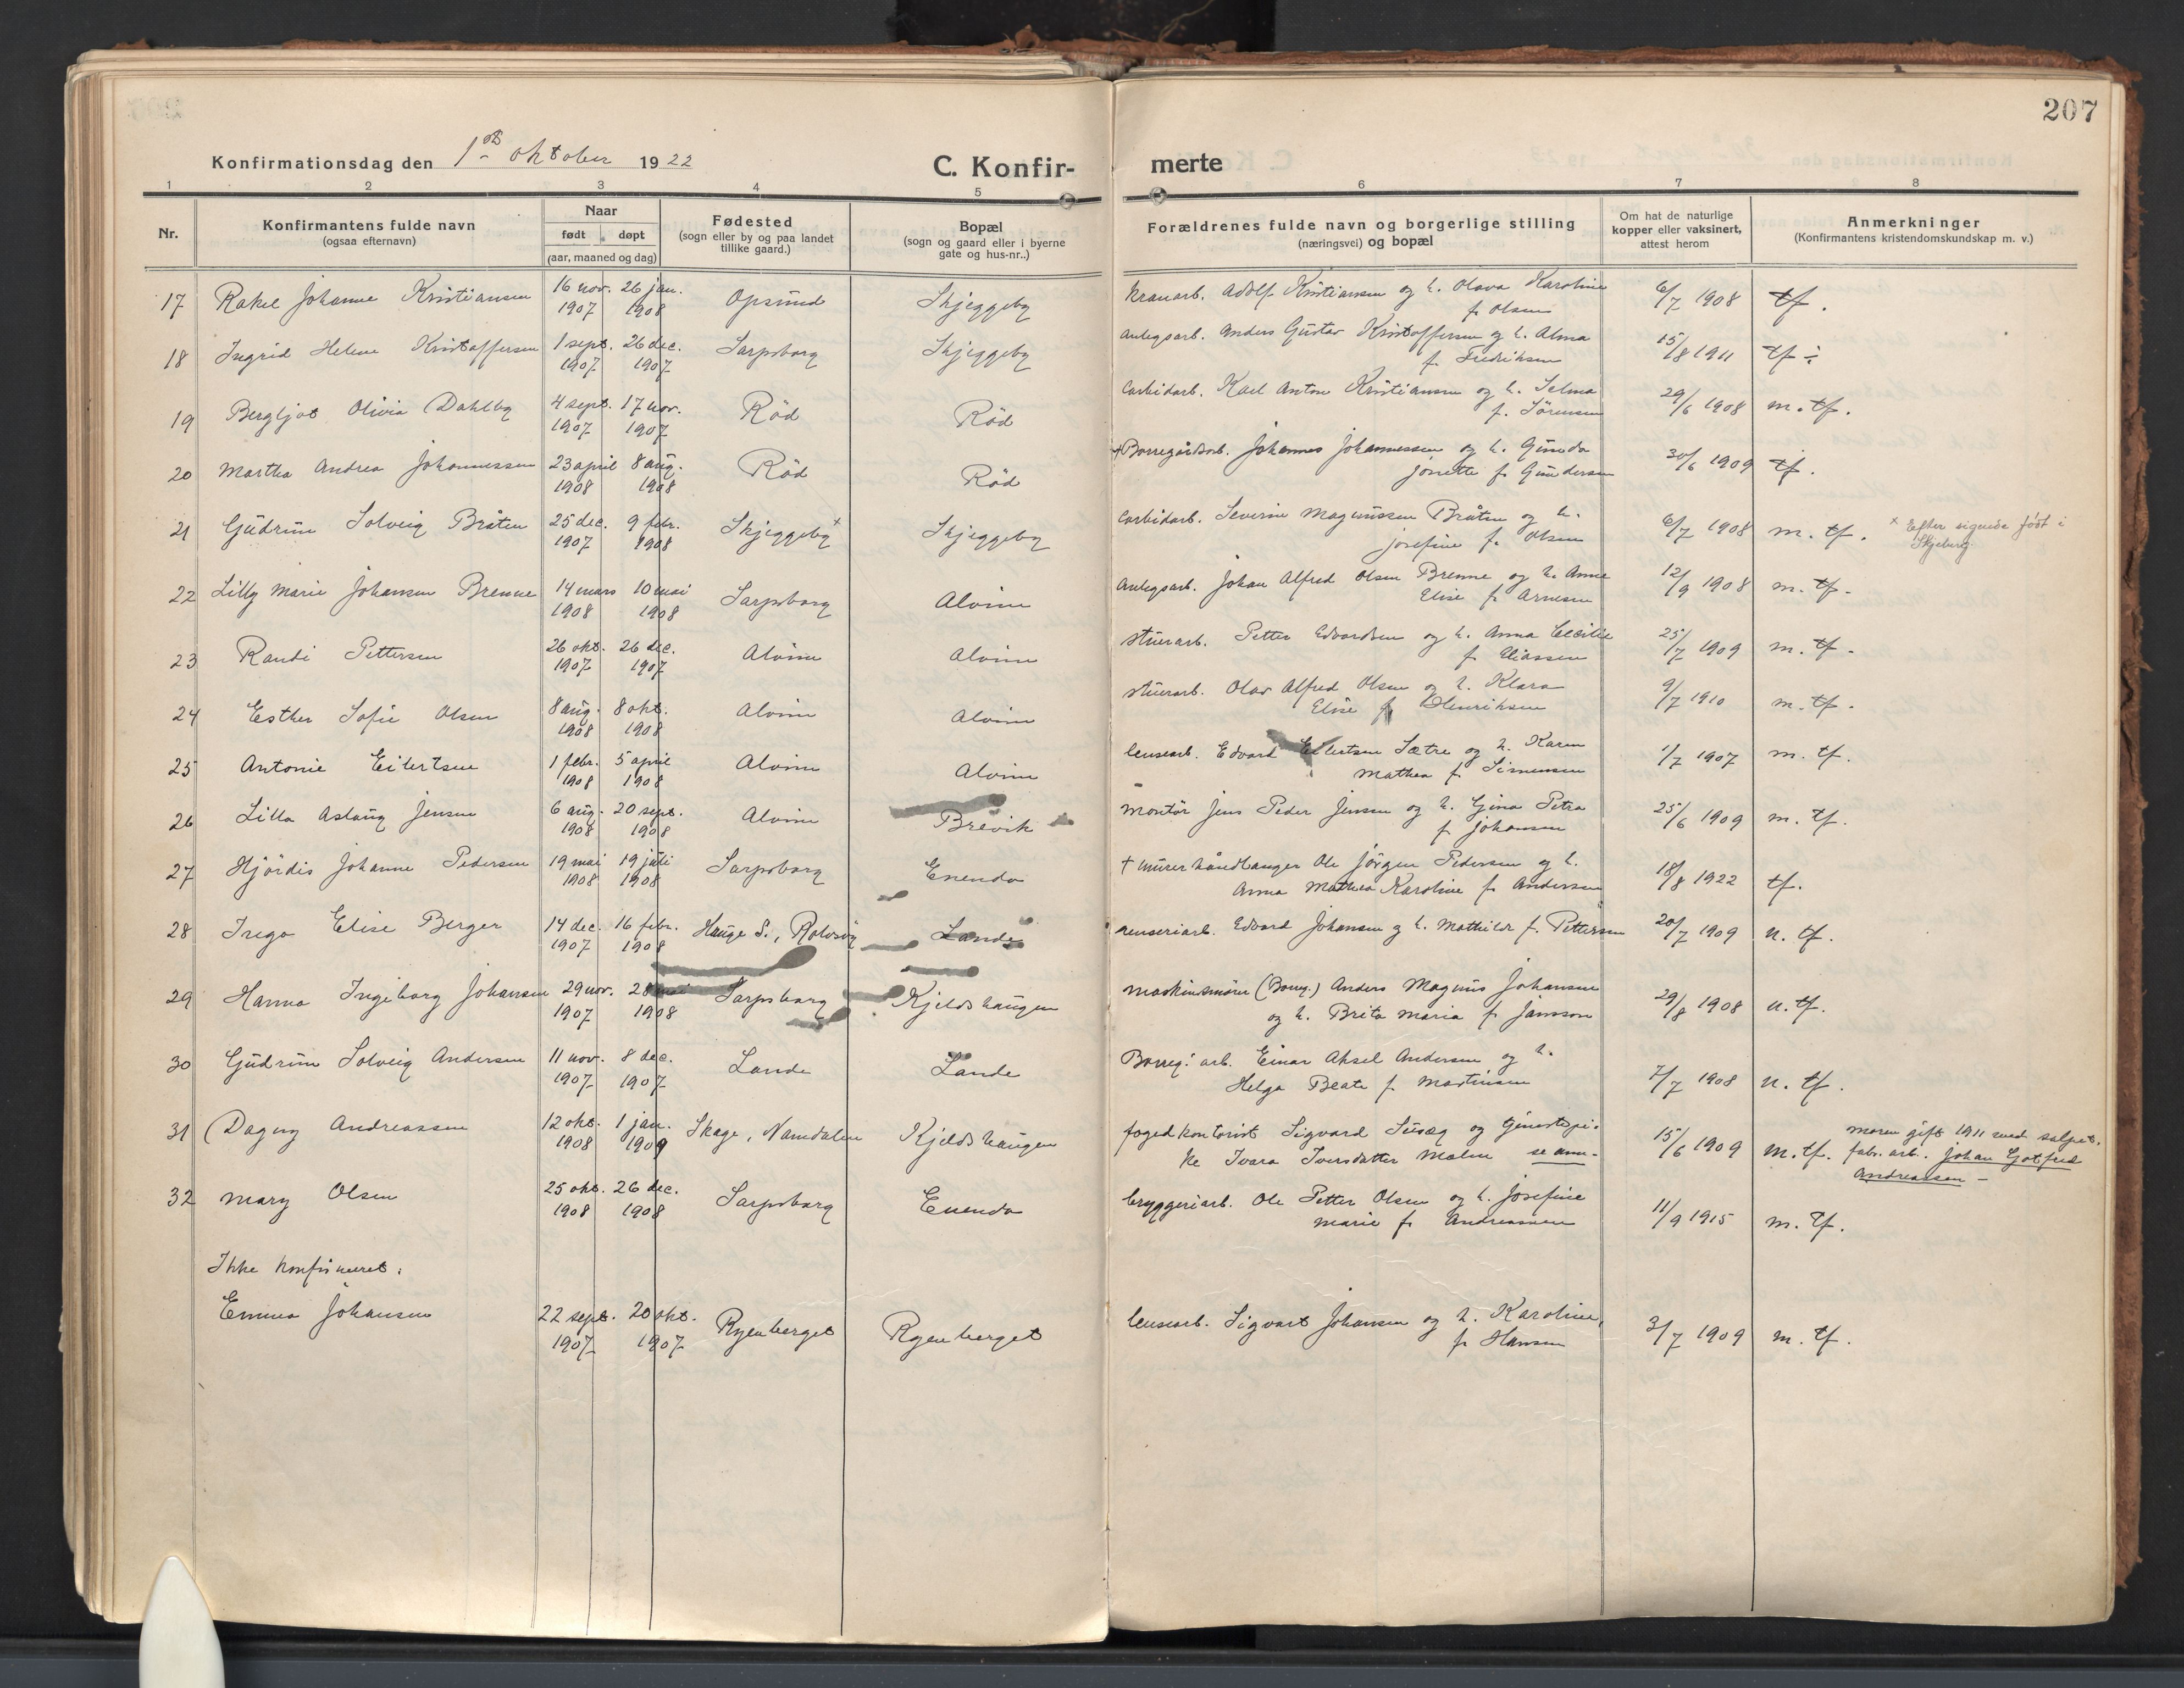 207
Konfirmationsdag den 1ste oktober 1922 C. Konfir- merte
1 2 3 4 5 6 7 8
Nr. Konfirmantens fulde navn (ogsaa efternavn) Naar født døpt (aar, maaned og dag) Fødested (sogn eller by og paa landet tillike gaard.) Bopæl (sogn og gaard eller i byerne gate og hus-nr..) Forældrenes fulde navn og borgerlige stilling (næringsvei) og bopæl Om hat de naturlige kopper eller vaksinert, attest herom Anmerkninger (Konfirmantens kristendomskundskap m. v.)
17 Rakel Johanne Kristiansen 16 nov. 26 jan. Opsund Skjeggeby Kranarb. Adolf Kristiansen og h. Olava Karoline 6/7 1908 tf.
1907 1908 f. Olsen
18 Ingrid Helene Kristoffersen 1 sept. 26 dec. Sarpsborg Skjeggeby anlegsarb. Anders Gustav Kristoffersen og h. Alma 15/8 1911 tf ÷
1907 1907 f. Fredriksen
19 Bergljot Olivia Dahlby 4 sept. 17 nov. Rød Rød Carbidarb. Karl Anton Kristiansen og h. Selma 29/6 1908 m. tf.
1907 1907 f. Sörensen
20 Martha Andrea Johannessen 23 april 8 aug. Rød Rød + Borregårdsarb. Johannes Johannessen og h. Gunda 30/6 1909 tf.
1908 1908 Jonette f. Gundersen
21 Gudrun Solveig Bråten 25 dec. 9 febr. Skjeggeby x Skjeggeby Carbidarb. Severin Magnussen Bråten og h. 6/7 1908 m. tf. x Efter sigende föst i
1907 1908 Josefine f. Olsen Skjeberg
22 Lilly Marie Johansen Brenne 14 mars 10 mai Sarpsborg Alvim Anlegsarb. Johan Alfred Olsen Brenne og h. Anne 12/9 1908 m. tf.
1908 1908 Elise f. Arnesen
23 Randi Pettersen 26 okt. 26 dec. Alvim Alvim Stuerarb. Petter Edvardsen og h. Anna Cecilie 25/7 1909 m. tf.
1907 1907 f. Eliassen
24 Esther Sofie Olsen 8 aug. 8 okt. Alvim Alvim Stuerarb. Olav Alfred Olsen og h. Klara 9/7 1910 m. tf.
1908 1908 Elise f. Henriksen
25 Antonie Eilertsen 1 febr. 5 april Alvim Alvim lensearb. Edvard Eilertsen Sætre og h. Karen 1/7 1907 m. tf.
1908 1908 Mathea f. Simensen
26 Lilla Aslaug Jensen 6 aug. 20 sept. Alvim Brevik Montør Jens Peder Jensen og h. Gina Petra 25/6 1909 m. tf.
1908 1908 f. Johansen
27 Hjördis Johanne Pedersen 19 mai 19 juli Sarpsborg Enenda + Murerhåndlanger Ole Jörgen Pedersen og h. 18/8 1922 tf.
1908 1908 Anna Mathea Karoline f. Andersen
28 Inga Elise Berger 14 dec. 16 febr. Hauge S., Rolvsöy Lande renseriarb. Edvard Johansen og h. Mathilde f. Pettersen 20/7 1909 n. tf.
1907 1908
29 Hanna Ingeborg Johansen 29 nov. 28 mai Sarpsborg Kjeldshaugen maskinsmörer (Borreg.) Anders Magnus Johansen 29/8 1908 n. tf.
1907 1908 og h. Brita Maria f. Jansson
30 Gudrun Solveig Andersen 11 nov. 8 dec. Lande Lande Borreg. arb. Einar Aksel Andersen og h. 7/7 1908 n. tf.
1907 1907 Helga Beate f. Martinsen
31 Dagny Andreassen 12 okt. 1 jan. Skage, Namdalen Kjeldshaugen fogedkontorist Sigvard Susæg og Ginostepi- 15/6 1909 m. tf. moren gift 1911 med salpet.
1908 1909 ke Ivara Iversdatter Malm se anm- fabr. arb. Johan Gotfred
Andreassen -
32 Mary Olsen 25 okt. 26 dec. Sarpsborg Enenda bryggeriarb. Ole Petter Olsen og h. Josefine 11/9 1915 m. tf.
1908 1908 Marie f. Andreassen
Ikke konfirmeret:
Emma Johansen 22 sept. 20 okt. Ryenberget Ryenberget lensearb. Sigvart Johansen og h. Karoline, 3/7 1909 m. tf.
1907 1907 f. Hansen